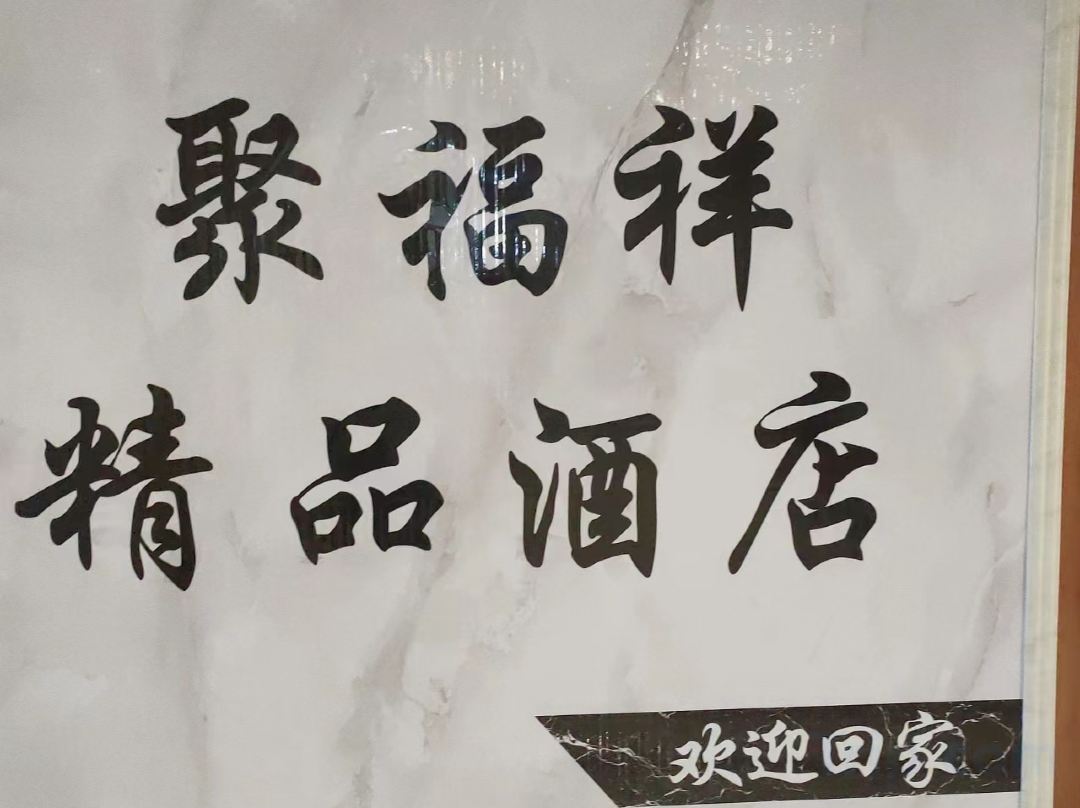 聚福祥
精品酒店
欢迎回家